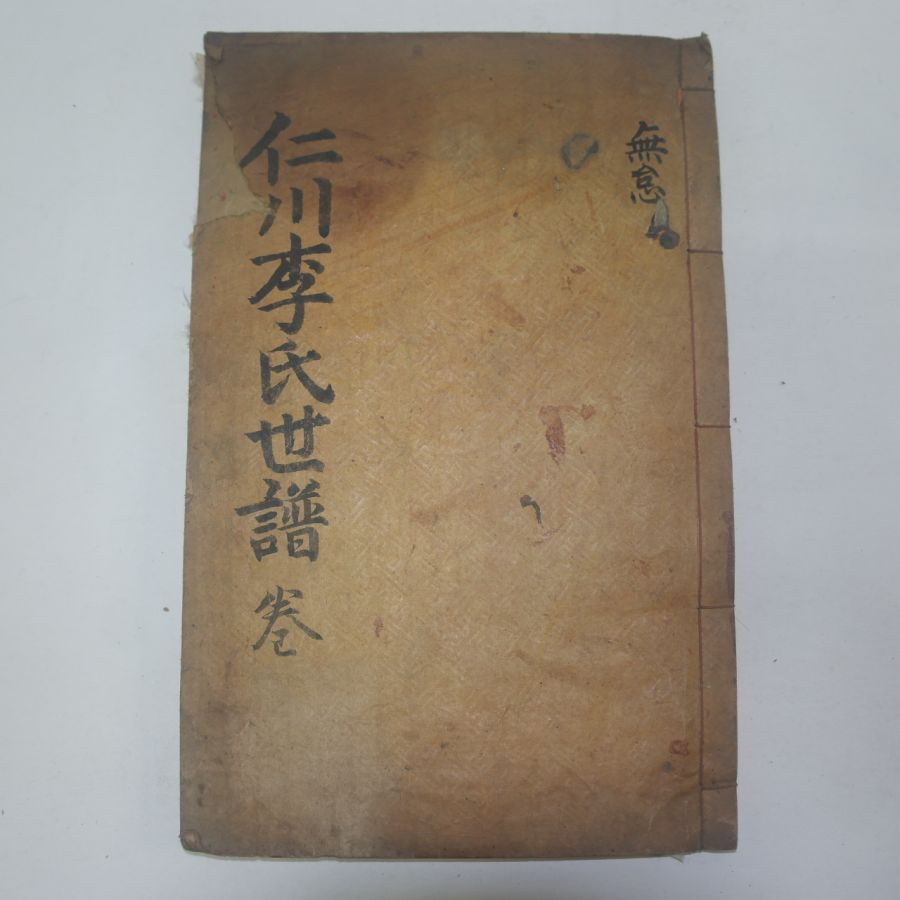 無怠
仁川李氏世譜 卷